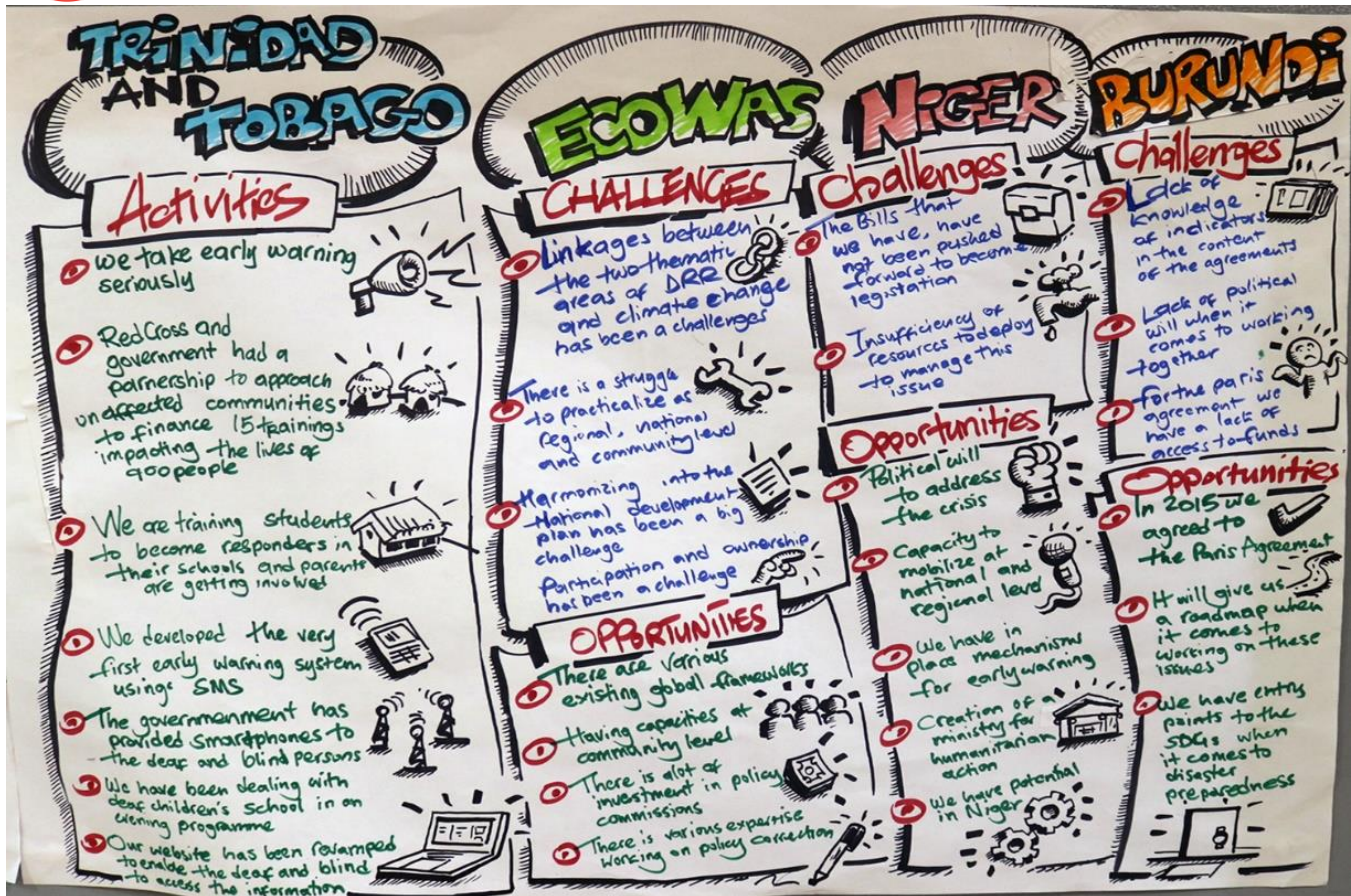 TRINIDAD
AND
TOBAGO
Activities
we take early warning
seriously
RedCross and
government had a
parnership to approach
unaffected communities
to finance 15 trainings
impacting the lives of
900 people
We are training students
to become responders in
their schools and parents
are getting involved
We developed the very
first early warning system
using SMS
The governmenment has
provided Smartphones to
the deaf and blind persons
We have been dealing with
deaf children's school in an
evening programme
Our website has been revamped
to enable the deaf and blind
to access the information
ECOWAS
CHALLENGES
Linkages between
the two thematic
areas of DRR
and climate change
has been a challenges
There is a struggle
to practicalize as
regional, national
and community level
Harmonizing into the
National development
plan has been a big
challenge
Participation and ownership
has been a challenge
OPPORTUNITIES
There are various
existing global frameworks
Having capacities at
community level
There is alot of
investment in policy
commissions
There is various expertise
working on policy correction
NIGER
Challenges
The Bills that
we have, have
not been pushed
forward to become
legistation
Insufficiency of
resources to deploy
to manage this
issue
Opportunities
Political will
to address
the crisis
Capacity to
mobilize at
national and
regional level
We have in
place mechanisms
for early warning
Creation of a
ministry for
humanitarian
action
We have potential
in Niger
BURUNDI
Challenges
Lack of
knowledge
of indicators
in the content
of the agreements
Lack of political
will when it
comes to working
together
For the paris
agreement we
have a lack of
access to funds
Opportunities
In 2015 we
agreed to
the Paris Agreement
It will give us
a roadmap when
it comes to
working on these
issues
We have entry
points to the
SDGs when
it comes to
disaster
preparedness